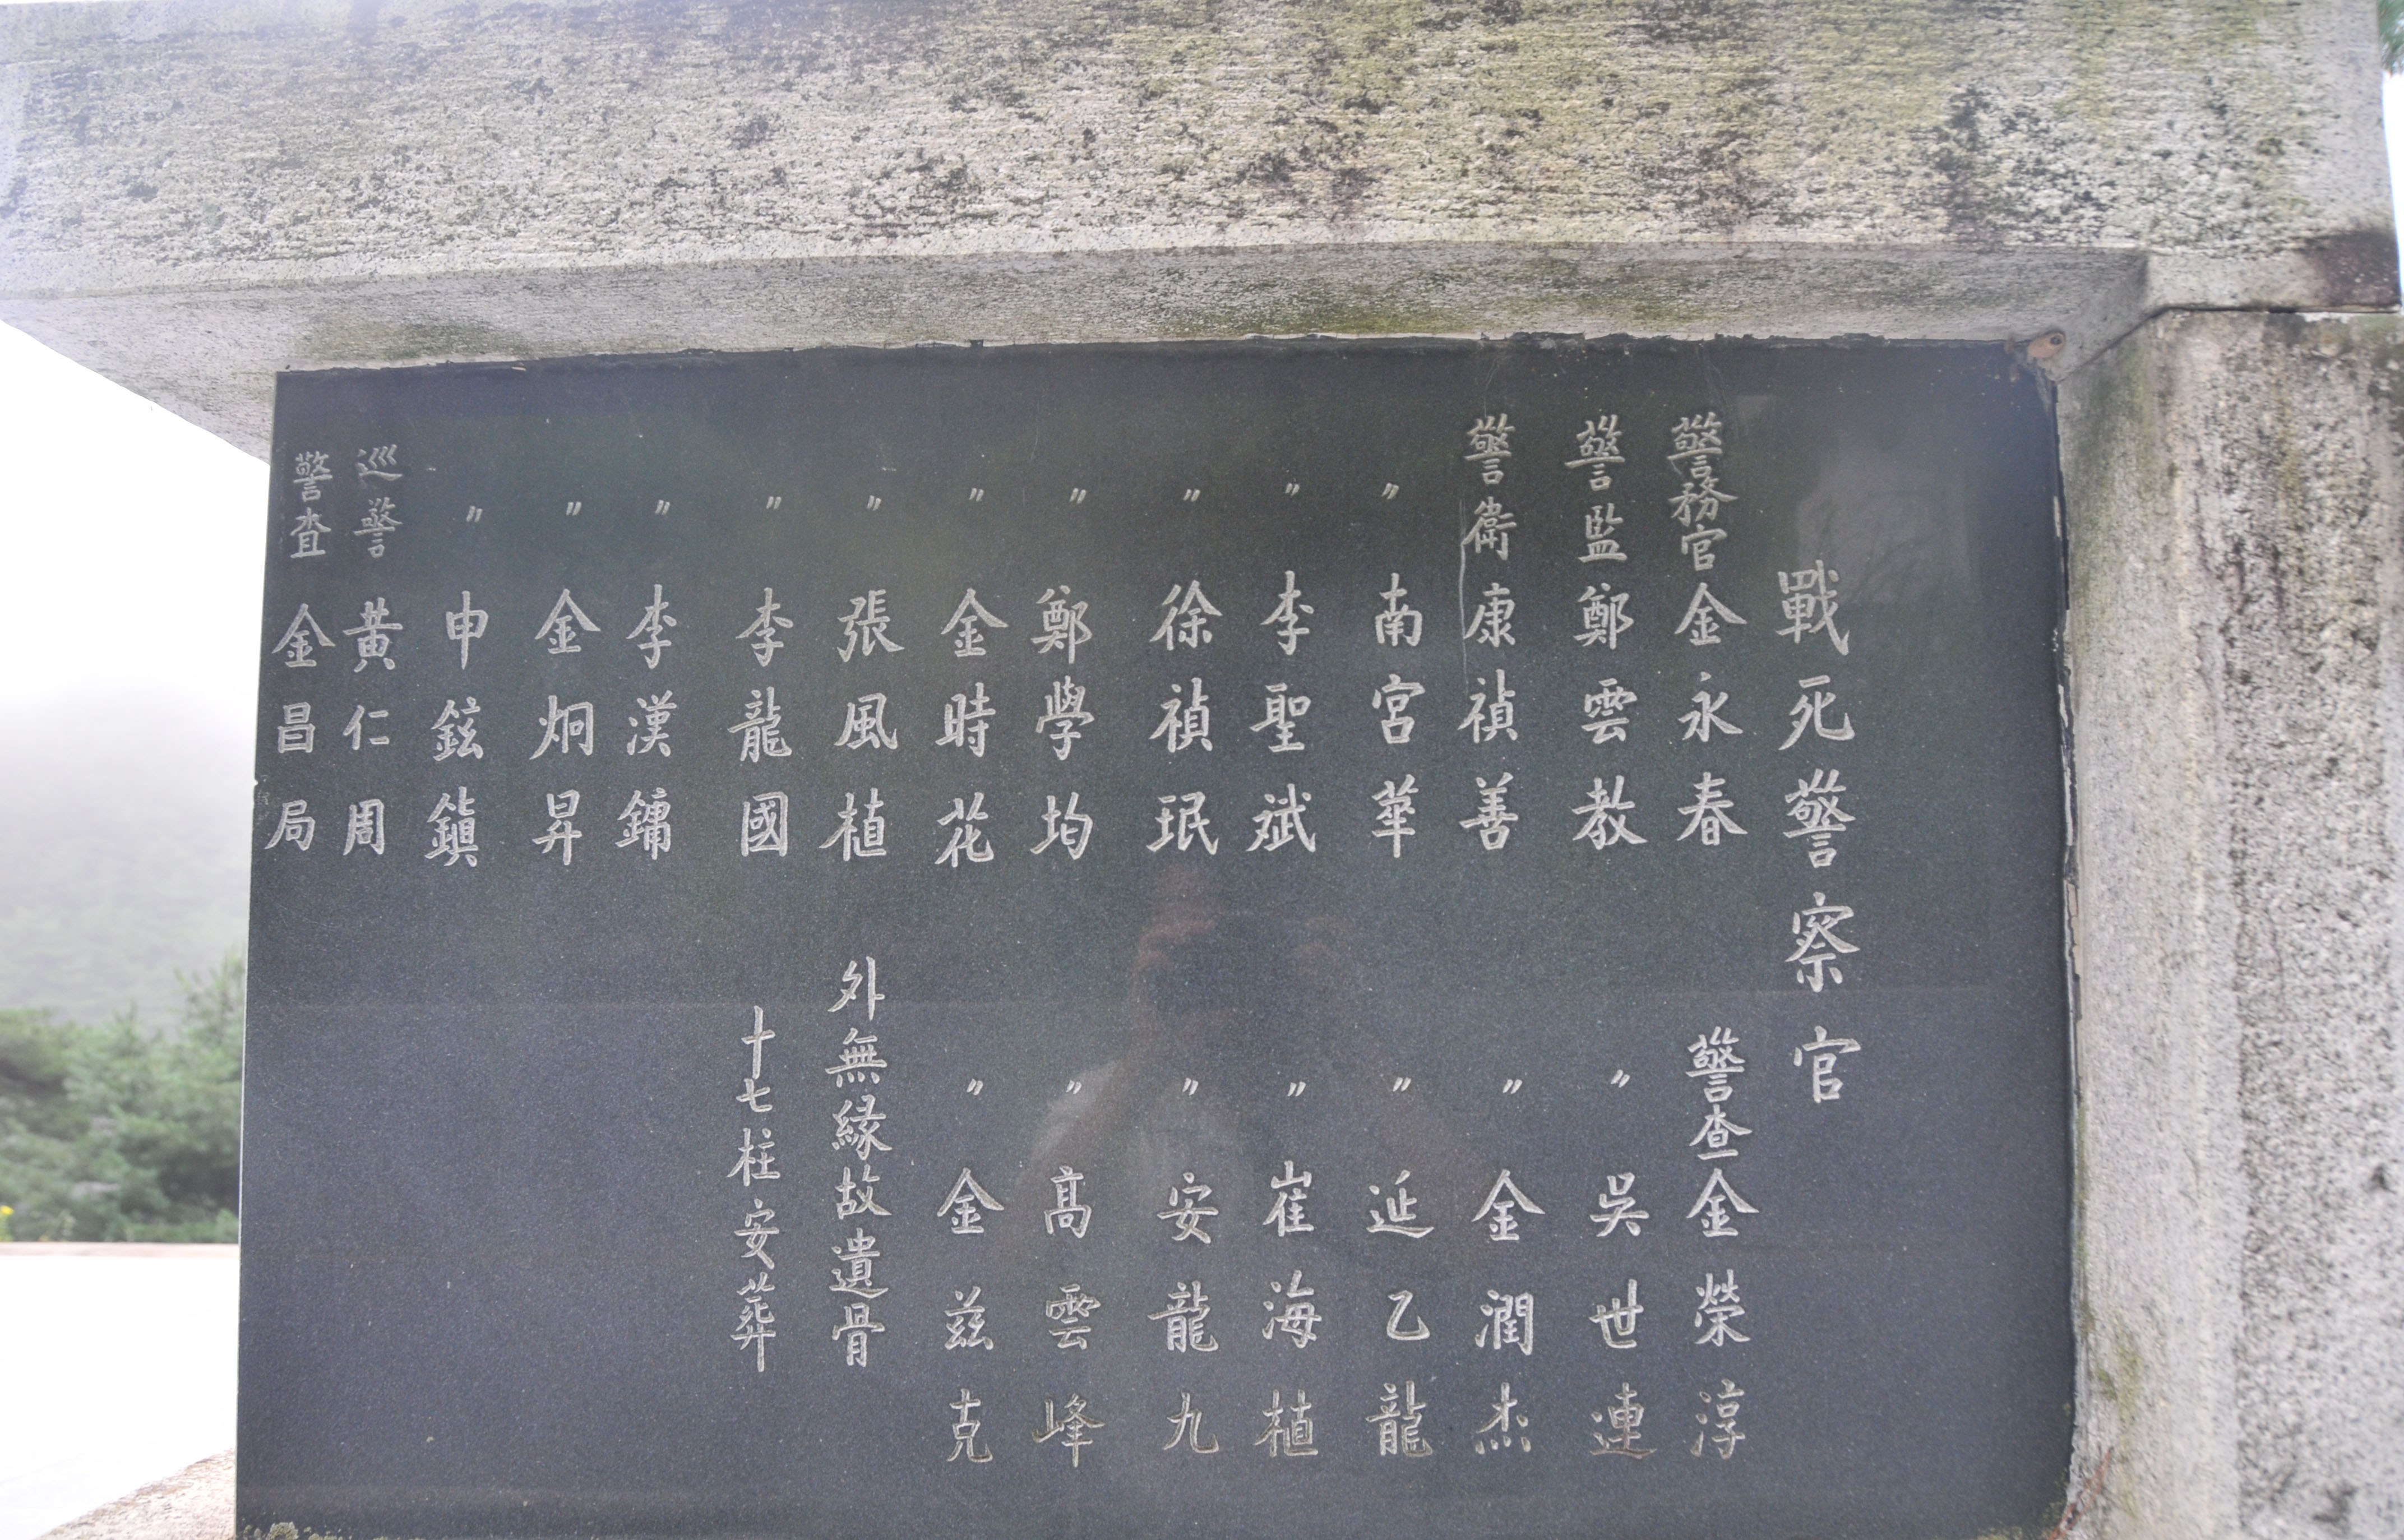 戰死警察官
警務官 金永春
警監 鄭雲教
警衛 康禎善
〃 南宮華
〃 李聖斌
〃 徐禎珉
〃 鄭學均
〃 金時花
〃 張風植
〃 李龍國
〃 李漢鏞
〃 金炯昇
〃 申鉉鎭
巡警 黃仁周
警査 金昌局
警査 金榮淳
〃 吳世連
〃 金潤杰
〃 延乙龍
〃 崔海植
〃 安龍九
〃 高雲峰
〃 金玆克
外無緣故遺骨
十七柱安葬